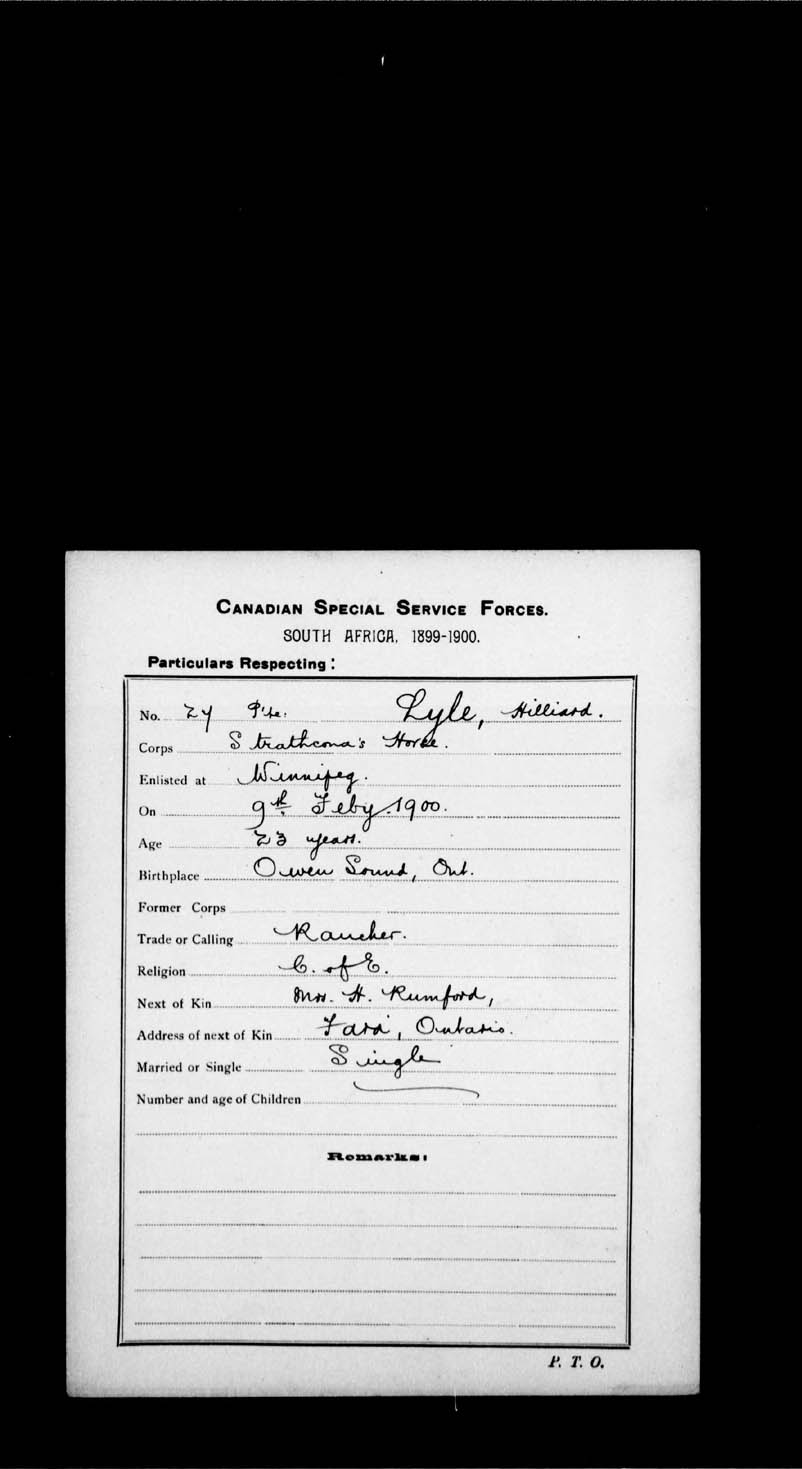 CANADIAN SPECIAL SERVICE FORCES.
SOUTH AFRICA, 1899-1900.
Particulars Respecting:
No. 27 Pte. Lyle, Hilliard.
Corps Strathcona's Horse.
Enlisted at Winnipeg.
On 9th Feby. 1900.
Age 23 years.
Birthplace Owen Sound, Ont.
Former Corps
Trade or Calling Rancher.
Religion C. of E.
Next of Kin Mrs. H. Rumford,
Address of next of Kin Tara, Ontario.
Married or Single Single
Number and age of Children
Remarks:
P. T. O.